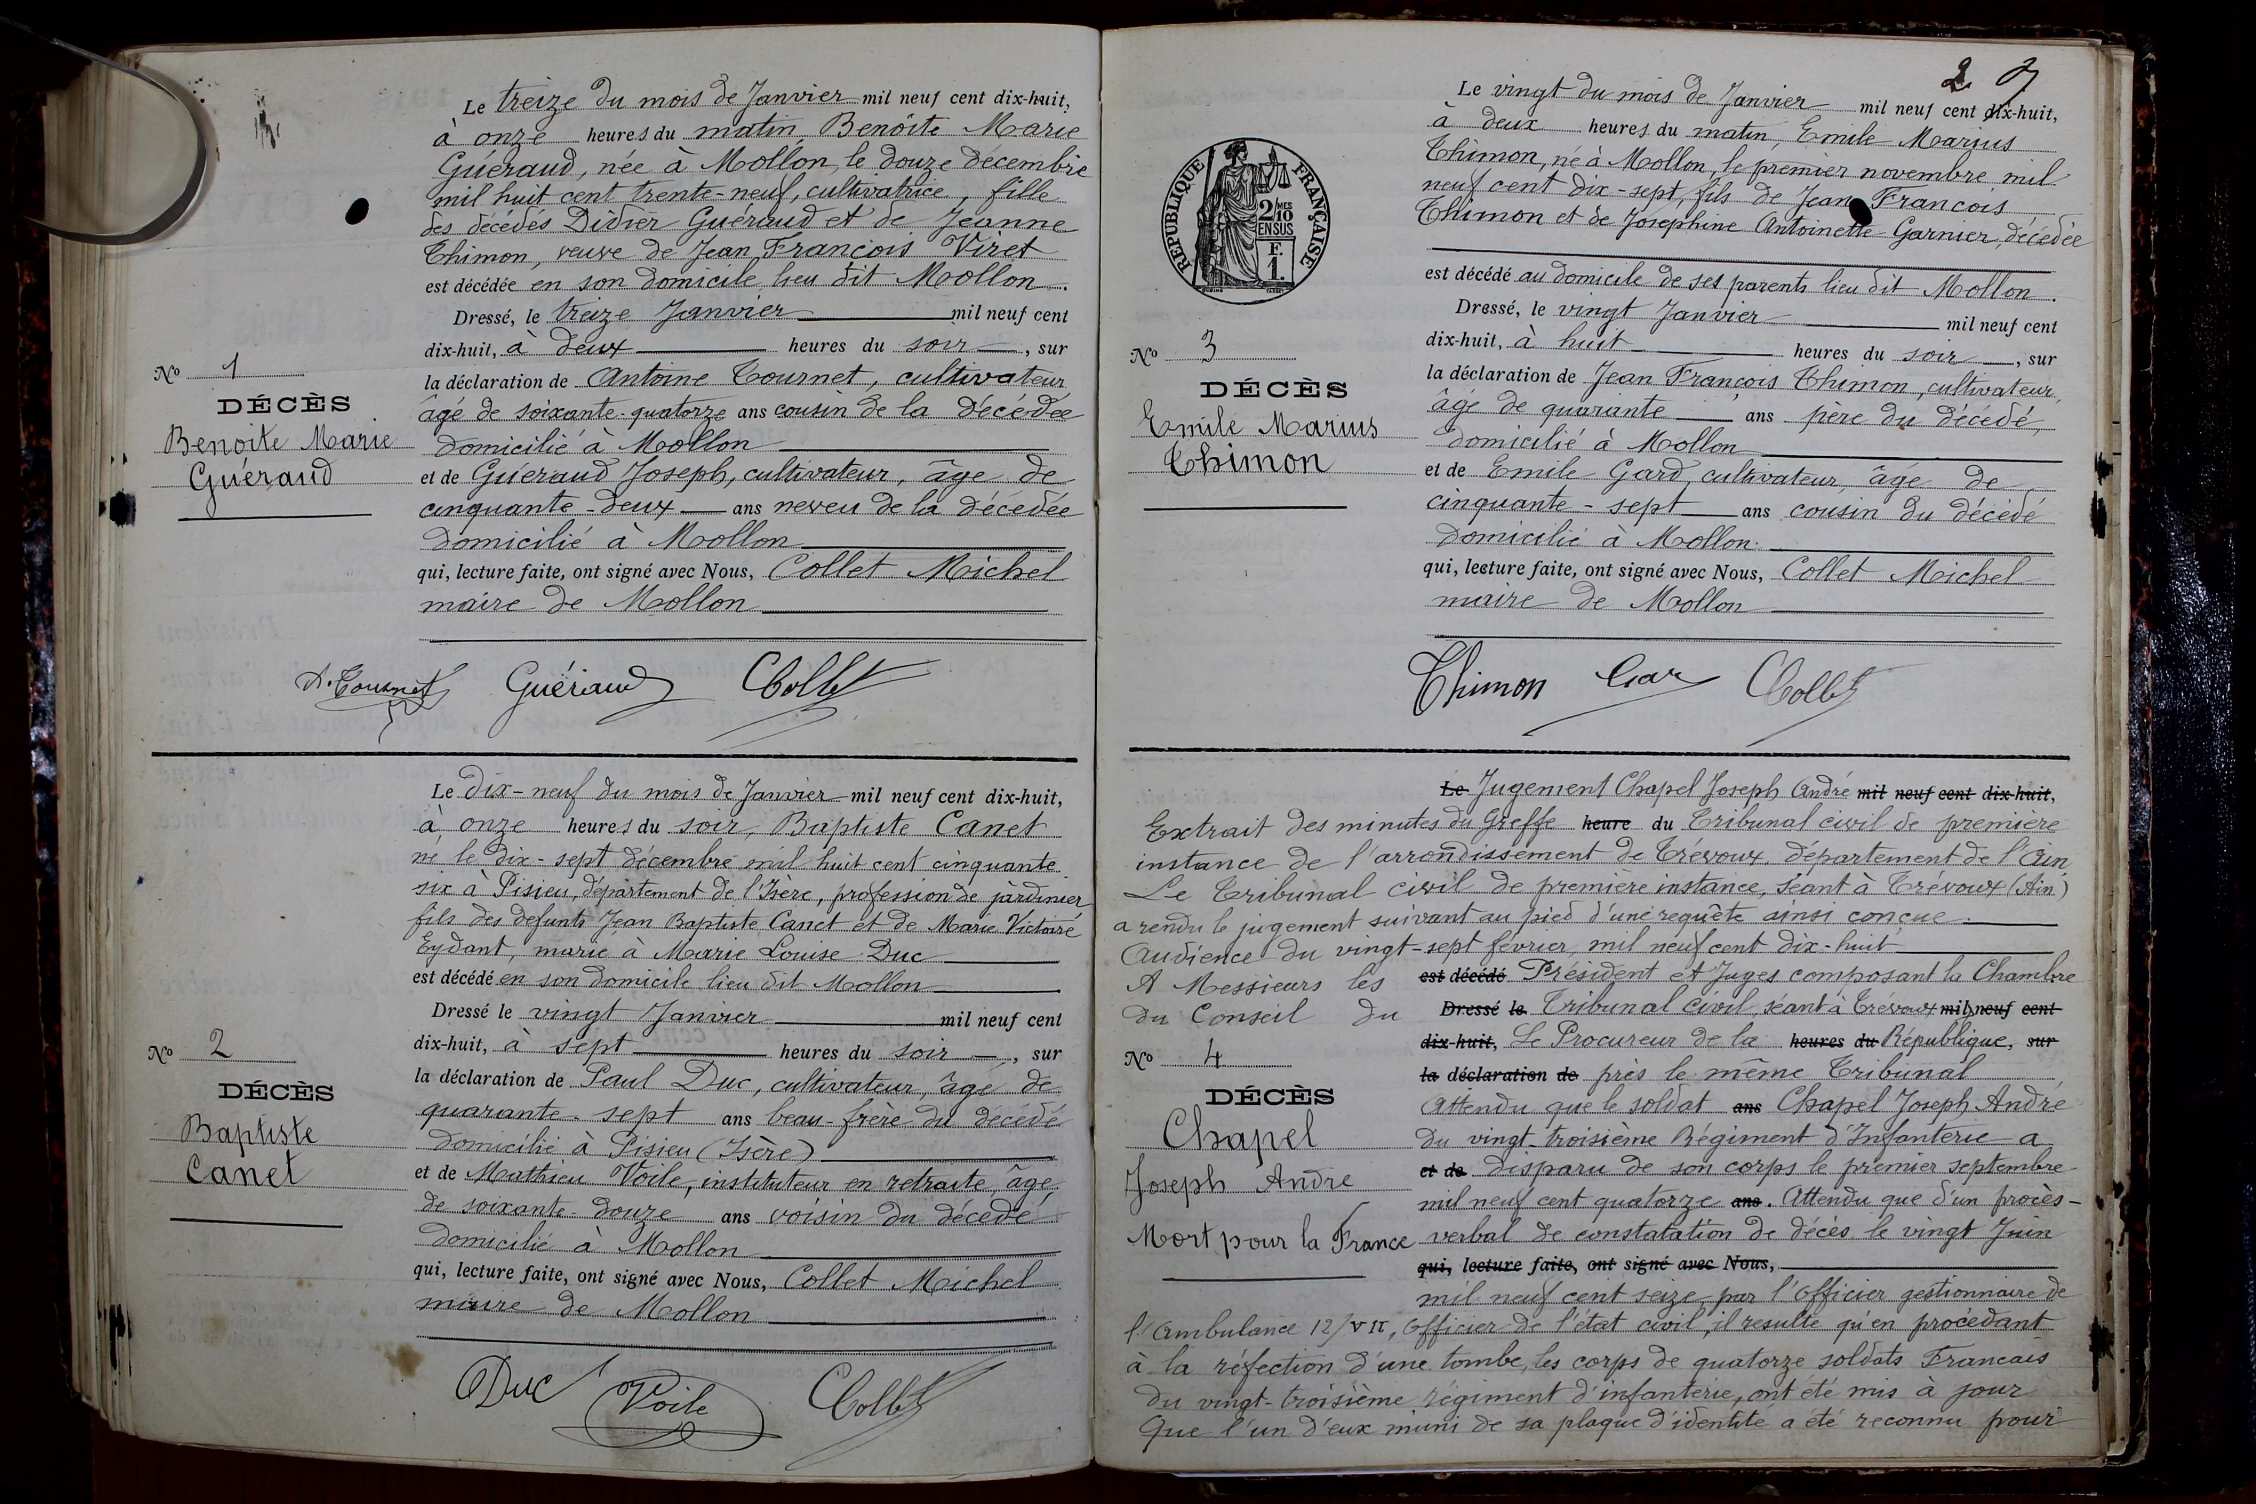 Le treize du mois de Janvier mil neuf cent dix-huit,
à onze heures du matin, Benoîte Marie
Guéraud, née à Mollon, le douze décembre
mil huit cent trente-neuf, cultivatrice, fille
des décédés Didier Guéraud et de Jeanne
Thimon, veuve de Jean François Viret
est décédée en son domicile lieu dit Mollon.
Dressé, le treize Janvier mil neuf cent
dix-huit, à deux heures du soir, sur
la déclaration de Antoine Tournet, cultivateur
âgé de soixante-quatorze ans cousin de la décédée
domicilié à Mollon
et de Guéraud Joseph, cultivateur, âgé de
cinquante-deux ans neveu de la décédée
domicilié à Mollon
qui, lecture faite, ont signé avec Nous, Collet Michel
maire de Mollon
Nº 1
DÉCÈS
Benoite Marie
Guéraud
A. Tournet Guéraud Collet
Le dix-neuf du mois de Janvier mil neuf cent dix-huit,
à onze heures du soir, Baptiste Canet
né le dix-sept décembre mil huit cent cinquante
six à Pisieu, département de l'Isère, profession de jardinier
fils des defunts Jean Baptiste Canet et de Marie Victoire
Eydant, marié à Marie Louise Duc
est décédé en son domicile lieu dit Mollon
Dressé le vingt Janvier mil neuf cent
dix-huit, à sept heures du soir, sur
la déclaration de Paul Duc, cultivateur, âgé de
quarante-sept ans beau-frère du décédé
domicilié à Pisieu (Isère)
et de Mathieu Voile, instituteur en retraite, âgé
de soixante-douze ans voisin du décédé
domicilié à Mollon
qui, lecture faite, ont signé avec Nous, Collet Michel
maire de Mollon
Nº 2
DÉCÈS
Baptiste
Canet
Duc Voile Collet
2
Le vingt du mois de Janvier mil neuf cent dix-huit,
à deux heures du matin, Emile Marius
Thimon, né à Mollon, le premier novembre mil
neuf cent dix-sept, fils de Jean François
Thimon et de Josephine Antoinette Garnier, décédée
est décédé au domicile de ses parents lieu dit Mollon.
Dressé, le vingt Janvier mil neuf cent
dix-huit, à huit heures du soir, sur
la déclaration de Jean François Thimon, cultivateur,
âgé de quarante ans père du décédé,
domicilié à Mollon
et de Emile Gard, cultivateur, âgé de
cinquante-sept ans cousin du décédé
domicilié à Mollon.
qui, lecture faite, ont signé avec Nous, Collet Michel
maire de Mollon
RÉPUBLIQUE FRANÇAISE
2/10 MES
EN SUS
F.
1.
Nº 3
DÉCÈS
Emile Marius
Thimon
Thimon Gar Collet
Le Jugement Chapel Joseph André mil neuf cent dix-huit,
Extrait des minutes du Greffe heure du Tribunal civil de première
instance de l'arrondissement de Trévoux, département de l'Ain
Le Tribunal civil de première instance, séant à Trévoux (Ain)
a rendu le jugement suivant au pied d'une requête ainsi conçue.
Audience du vingt-sept février, mil neuf cent dix-huit
A Messieurs les est décédé Président et Juges composant la Chambre
du Conseil du Dressé le Tribunal civil, séant à Trévoux mil neuf cent
dix-huit, Le Procureur de la heures du République, sur
la déclaration de près le même Tribunal
Attendu que le soldat ans Chapel Joseph André
du vingt-troisième Régiment d'Infanterie a
et de disparu de son corps le premier septembre
mil neuf cent quatorze ans. Attendu que d'un procès-
verbal de constatation de décès le vingt Juin
qui, lecture faite, ont signé avec Nous,
mil neuf cent seize, par l'Officier gestionnaire de
l'Ambulance 12/VII, Officier de l'état civil, il resulte qu'en procédant
à la réfection d'une tombe, les corps de quatorze soldats Francais
du vingt-troisième régiment d'infanterie, ont été mis à jour
Que l'un d'eux muni de sa plaque d'identité a été reconnu pour
Nº 4
DÉCÈS
Chapel
Joseph André
Mort pour la France